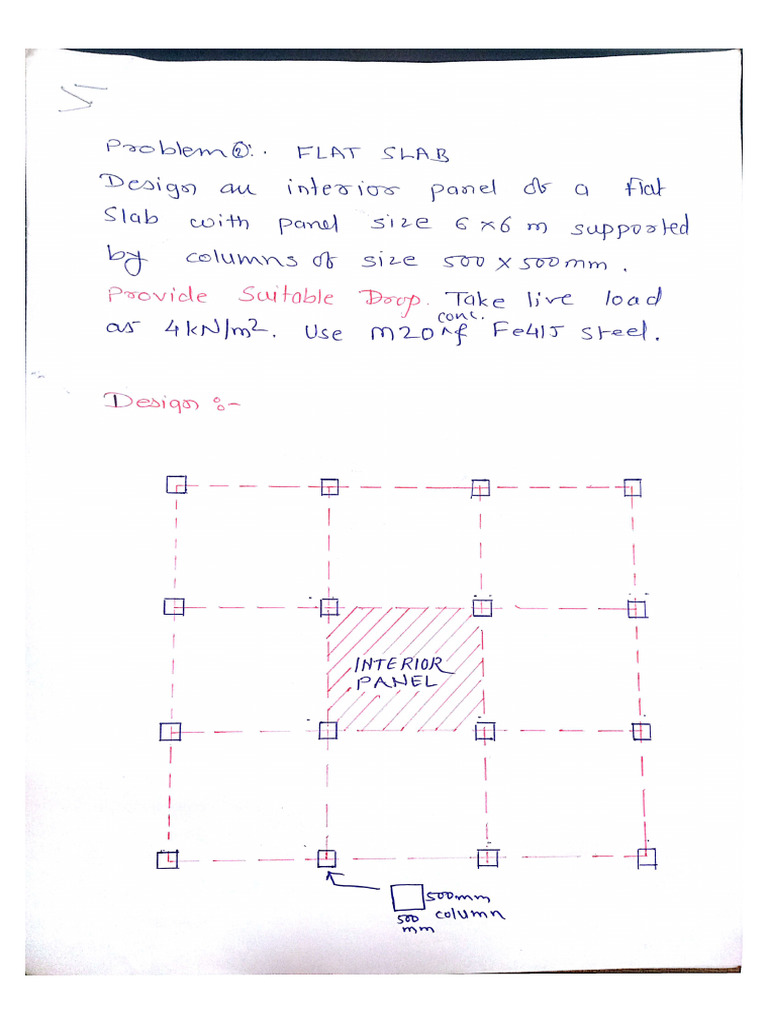 5
Problem ②:. FLAT SLAB
Design an interior panel of a flat
slab with panel size 6 x 6 m supported
by columns of size 500 x 500 mm.
Provide Suitable Drop. Take live load
as 4 kN/m². Use M20 conc. & Fe415 steel.
Design :-
INTERIOR
PANEL
500mm
column
500
mm